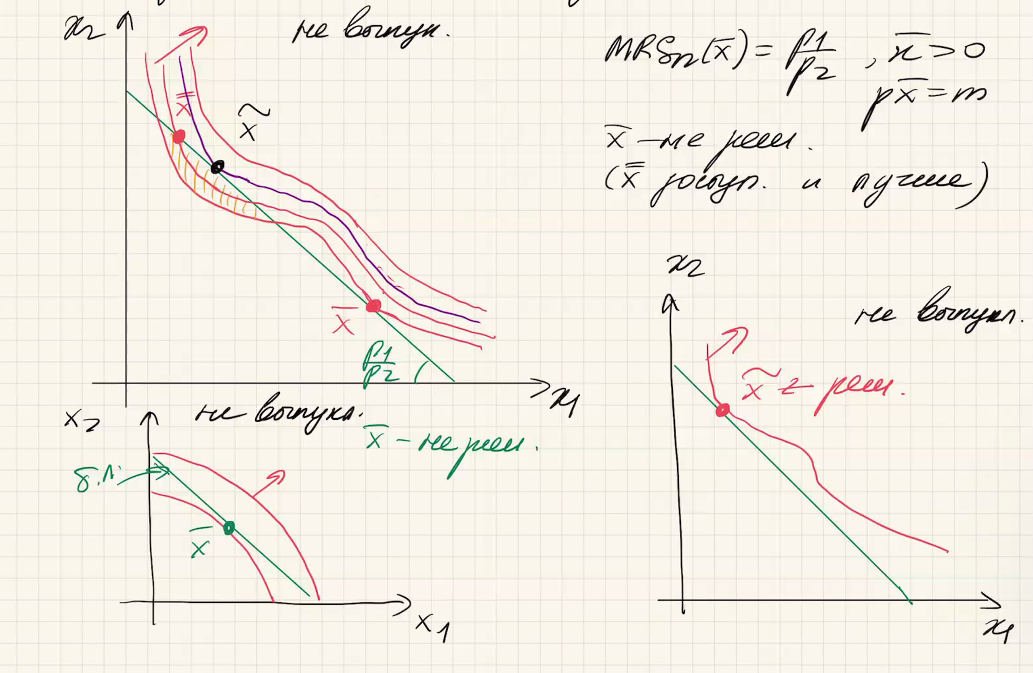 x₂
не выпук.
x̿
x̃
x̄
p1/p2
x1
MRS₁₂(x̄) = p1/p2 , x̄ > 0
px̄ = m
x̄ – не реш.
(x̿ доступ. и лучше)
x₂
не выпукл.
x̃ ← реш.
x1
x₂
не выпукл.
x̄ – не реш.
б.л.
x̄
x1